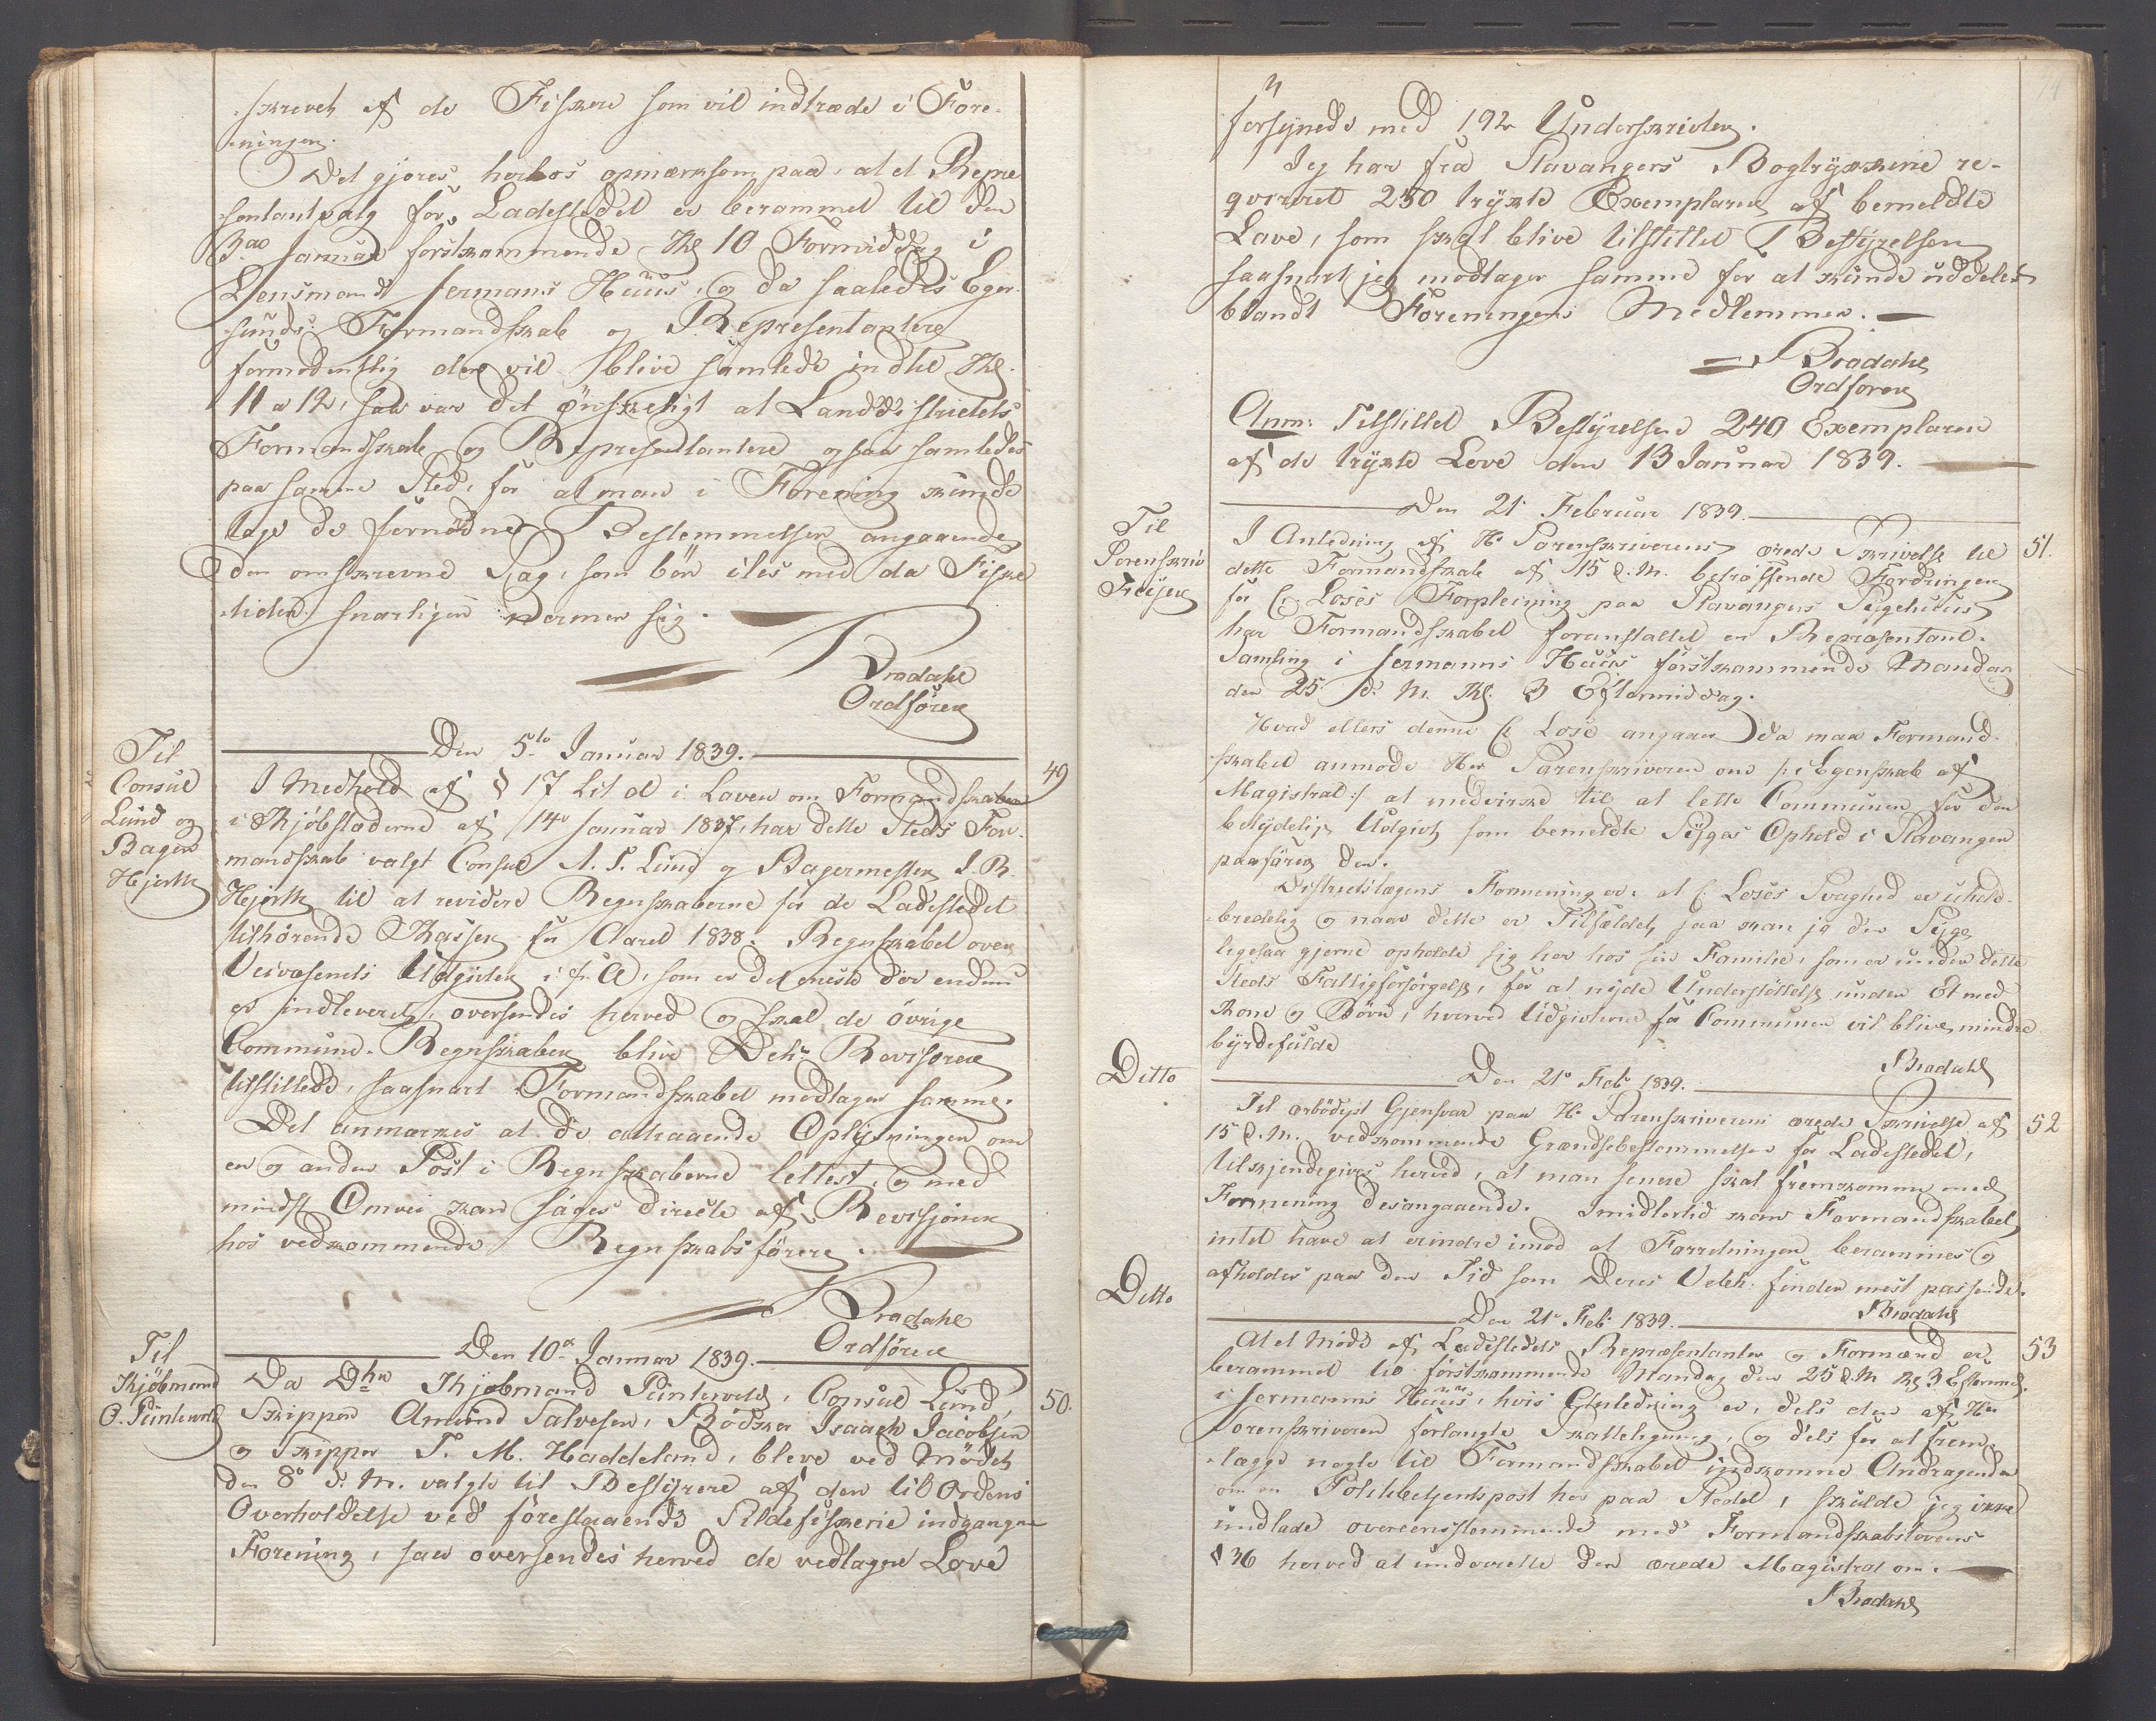 skrevet af de Fiskere som vil indtræde i Fore-
ningen.
Det gjøres herhos opmærksom paa, at et Repre
sentantvalg for Ladestedet er berammet til den
3die Januar førstkommende Kl 10 Formiddag i
Lensmand Jermans Huus, og da saaledes Eger-
sunds Formandskab og Representantere
formodentlig der vil blive samlede indtil Kl.
11 a 12, saa var det ønskeligt at Landdistrictets
Formandskab og Representantere ogsaa samledes
paa samme Sted, for at man i Forening kunde
tage de fornødne Bestemmelser angaaende
den omskrevne Sag, som bør iles med da Fiske
tiden snarligen nærmer sig.
Bradahl
Ordfører
Til
Consul
Lund og
Bager
Hjorth
Den 5te Januar 1839.
49
I Medhold af § 17 Lit d i Loven om Formandskaber
i Kjøbstæderne af 14de Januar 1837, har dette Steds For-
mandskab valgt Consul A. S. Lund og Bagermester I. R.
Hjorth til at revidere Regnskaberne for de Ladestedet
tilhørende Kasser for Aaret 1838. Regnskabet over
Veivæsenets Udgivter i f: A, som er det eneste der endnu
er indleveret, oversendes herved og skal de øvrige
Commune-Regnskaber blive Dehr. Revisorer
tilstillede, saasnart Formandskabet modtager samme.
Det anmærkes at de attraaende Oplysninger om
en og anden Post i Regnskaberne lettest, og med
mindst Omvei kan søges directe af Revisjonen
hos vedkommende Regnskabsførere.
Bradahl
Ordfører
Til
Kjøbmand
O. Puntervold
Den 10de Januar 1839.
50.
Da Dhr Kjøbmand Puntervold, Consul Lund,
Skipper Amund Salvesen, Bødker Isaach Jacobsen
og Skipper T. M. Haddeland, bleve ved Mødet
den 8de d. M. valgte til Bestyrere af den til Ordens
Overholdelse ved forestaaende Sildefiskerie indgangne
Forening, saa oversendes herved de vedtagne Love
forsynede med 192 Underskrivter.
Jeg har fra Stavangers Bogtrykkerie re-
qvireret 250 trykte Exemplarer af bemeldte
Love, som skal blive tilstillet Bestyrelsen
saasnart jeg modtager samme for at kunde uddeles
blandt Foreningens Medlemmer.
Bradahl
Ordfører
Anm: Tilstillet Bestyrelsen 240 Exemplarer
af de trykte Love den 13 Januar 1839.
Til
Sorenskriv
Feyer
Den 21 Februar 1839.
51.
I Anledning af Hr Sorenskriverens ærede Skrivelse til
dette Formandskab af 15 d. M. betræffende Fordringen
for C. Loses Forpleining paa Stavangers Sygehuus
har Formandskabet foranstaltet en Repræsentant-
Samling i Jermanns Huus førstkommende Mandag
den 25 d. M. Kl. 3 Eftermiddag.
Hvad ellers denne C Lose angaaer da maa Formand-
skabet anmode Herr Sorenskriveren om /: i Egenskab af
Magistrat :/ at medvirke til at lette Communen for den
betydelig Udgivt som bemeldte Syges Ophold i Stavanger
paafører den.
Districtslægens Formening er, at C. Loses Svaghed er uhel-
bredelig og naar dette er Tilfældet, saa kan jo den Syge
ligesaa gjerne opholde sig her hos sin Familie, som er under dette
Steds Fattigforsørgelse, for at nyde Understøttelse under Et med
Kone og Børn, hvorved Udgivterne for Communen vil blive mindre
byrdefulde
Bradahl
Ditto
Den 21de Feb. 1839.
52
Til ærbødigst Gjensvar paa Hr Sorenskriverens ærede Skrivelse af
15 d. M. vedkommende Grændsebestemmelser for Ladestedet,
tilkjendegives herved, at man senere skal fremkomme med
Formening desangaaende. Imidlertid kan Formandskabet
intet have at erindre imod at Forretningen berammes og
afholdes paa den Tid som Deres Velbh. finder mest passende.
Bradahl
Ditto
Den 21de Feb. 1839.
53
At et Møde af Ladestedets Repræsentanter og Formænd er
berammet til førstkommende Mandag den 25 d. M Kl 3 Efterm.
i Jermanns Huus, hvis Anledning er, dels den af Hr
Sorenskriveren forlangte Skatteligning, og dels for at frem-
lægge nogle til Formandskabet indkomne Andragender
om en Politibetjentpost her paa Stedet, skulde jeg ikke
undlade overeensstemmende med Formandskabslovens
§ 36 herved at underrette den ærede Magistrat om.
Bradahl